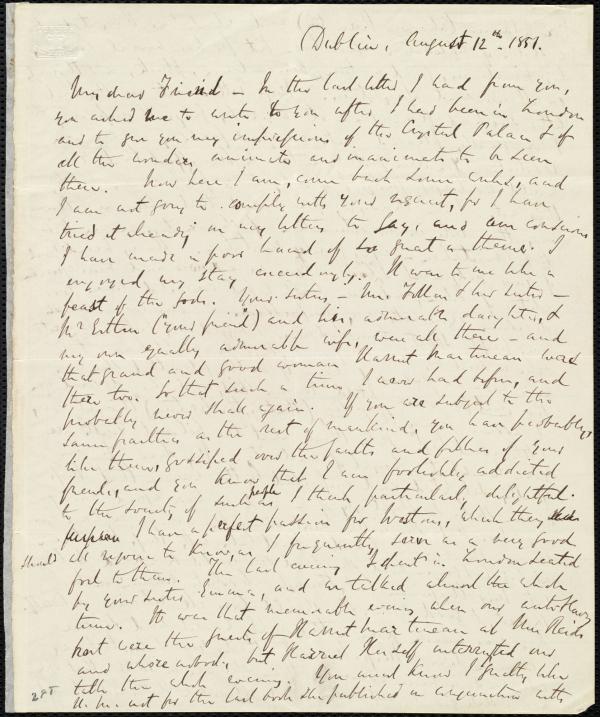 Dublin, August 12th. 1851.
My dear Friend – In the last letter I had from you,
you asked me to write to you after I had been in London
and to give you my impressions of the Crystal Palace & of
all the wonders animate and inanimate to be seen
there. Now here I am, come back some weeks, and
I am not going to comply with your request, for I have
tried it already in my letters to Gay, and am conscious
I have made a poor hand of so great a theme. I
enjoyed my stay exceedingly. It was to me like a
feast of the gods. Your sisters – Mrs. Follen & her sister –
Mr Estlin ("your friend") and his admirable daughter, &
my own equally admirable wife, were all there – and
that grand and good woman Harriet Martineau was
there too. So that such a time I never had before, and
probably never shall again. If you are subject to the
same frailties as the rest of mankind, you have probably,
like them, gossiped over the faults and foibles of your
friends, and you know that I am foolishly addicted
to the society of such people as I think particularly delightful.
I have a perfect passion for Westons, which they
should all rejoice to know, as I frequently serve as a very good
foil to them. The last evening I spent in London seated
by your sister Emma, and we talked almost the whole
time. It was that memorable evening when our antislavery
host were the guests of Harriet Martineau at Mrs Reids
and where nobody but Harriet herself interrupted our
talk the whole evening. You must know I greatly like
H. M. not for the last book she published in conjunction with
281